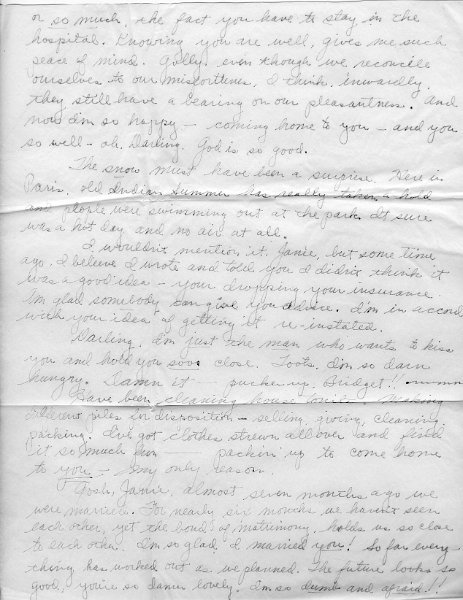 or so much, the fact you have to stay in the
hospital. Knowing you are well, gives me such
peace of mind. Golly even though we reconcile
ourselves to our misfortunes, I think, inwardly
they still have a bearing on our pleasantness. And
now I'm so happy — coming home to you — and you
so well — oh, Darling. God is so good.
The snow must have been a surprise. Here in
Paris, old Indian Summer has really taken a hold
and people were swimming out at the park. It sure
was a hot day and no air at all.
I wouldn't mention it, Janie, but some time
ago, I believe I wrote and told you I didn't think it
was a good idea — your dropping your insurance.
I'm glad somebody can give you advice. I'm in accord
with your idea of getting it re-instated.
Darling, I'm just the man who wants to kiss
you and hold you sooo close. Toots, I'm so darn
hungry. Damn it — pucker up, Bridget!!
Have been cleaning house tonite. Making
different piles in disposition — selling, giving, cleaning
packing. I've got clothes strewn all over and find
it so much fun — packin' up to come home
to you — my only reason.
Gosh, Janie, almost seven months ago we
were married. For nearly six months we haven't seen
each other, yet the bond of matrimony, holds us so close
to each other. I'm so glad I married you! So far every-
thing has worked out as we planned. The future looks so
good, you're so damn lovely. I'm so dumb and afraid!!